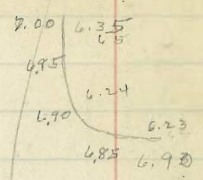 7.00 6.35
65
6.95
6.24
6.90
6.23
6.85 6.92